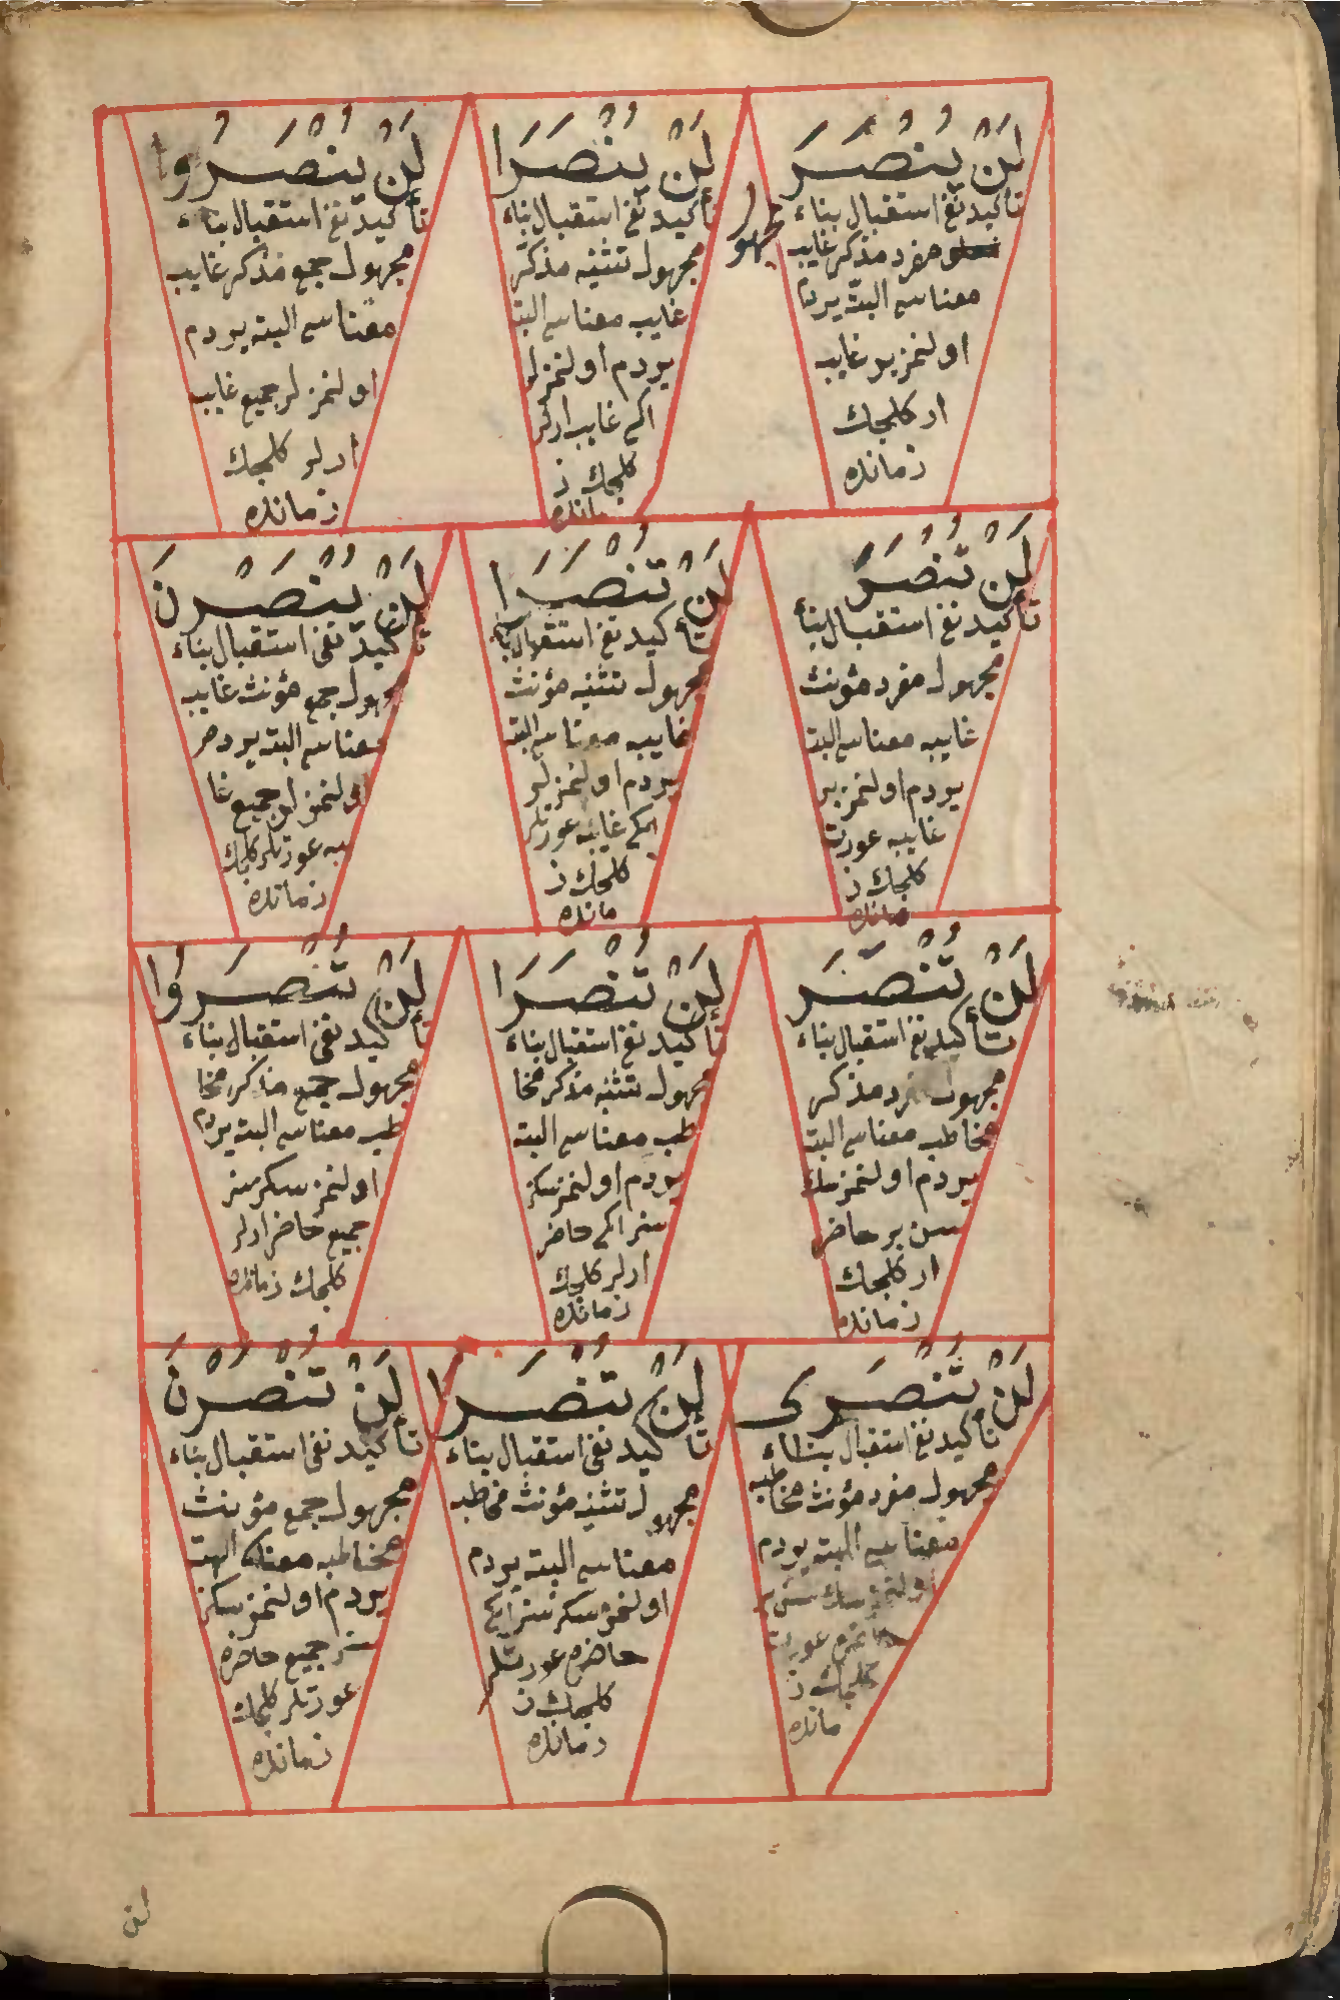 لَنْ يُنْصَرَ
تأكيد نفى استقبال بناء
مجهول
مفرد مذكر غايب
معناسى البته يردم
اولنمز بر غايب
ار كلجك
زمانده
لَنْ يُنْصَرَا
تأكيد نفى استقبال بناء
مجهول تثنيه مذكر
غايب معناسى البته
يردم اولنمزلر
ايكى غايب ارلر
كلجك ز
مانده
لَنْ يُنْصَرُوا
تأكيد نفى استقبال بناء
مجهول جمع مذكر غايب
معناسى البته يردم
اولنمزلر جميع غايب
ارلر كلجك
زمانده
لَنْ تُنْصَرَ
تأكيد نفى استقبال بناء
مجهول مفرد مؤنث
غايبه معناسى البته
يردم اولنمز بر
غايبه عورت
كلجك ز
مانده
لَنْ تُنْصَرَا
تأكيد نفى استقبال بناء
مجهول تثنيه مؤنث
غايبه معناسى البته
يردم اولنمزلر
ايكى غايبه عورتلر
كلجك ز
مانده
لَنْ يُنْصَرْنَ
تأكيد نفى استقبال بناء
مجهول جمع مؤنث غايبه
معناسى البته يردم
اولنمزلر جميع غا
يبه عورتلر كلجك
زمانده
لَنْ تُنْصَرَ
تأكيد نفى استقبال بناء
مجهول مفرد مذكر
مخاطب معناسى البته
يردم اولنمزسك
سن بر حاضر
ار كلجك
زمانده
لَنْ تُنْصَرَا
تأكيد نفى استقبال بناء
مجهول تثنيه مذكر مخا
طب معناسى البته
يردم اولنمزسكز
سز ايكى حاضر
ارلر كلجك
زمانده
لَنْ تُنْصَرُوا
تأكيد نفى استقبال بناء
مجهول جمع مذكر مخا
طب معناسى البته يردم
اولنمزسكز سز
جميع حاضر ارلر
كلجك زمانده
لَنْ تُنْصَرِى
تأكيد نفى استقبال بناء
مجهول مفرد مؤنث مخاطبه
معناسى البته يردم
اولنمزسك سن بر
حاضره عورت
كلجك ز
مانده
لَنْ تُنْصَرَا
تأكيد نفى استقبال بناء
مجهول تثنيه مؤنث مخاطبه
معناسى البته يردم
اولنمزسكز سز ايكى
حاضره عورتلر
كلجك ز
زمانده
لَنْ تُنْصَرْنَ
تأكيد نفى استقبال بناء
مجهول جمع مؤنث
مخاطبه معناسى البته
يردم اولنمزسكز
سز جميع حاضره
عورتلر كلجك
زمانده
لن